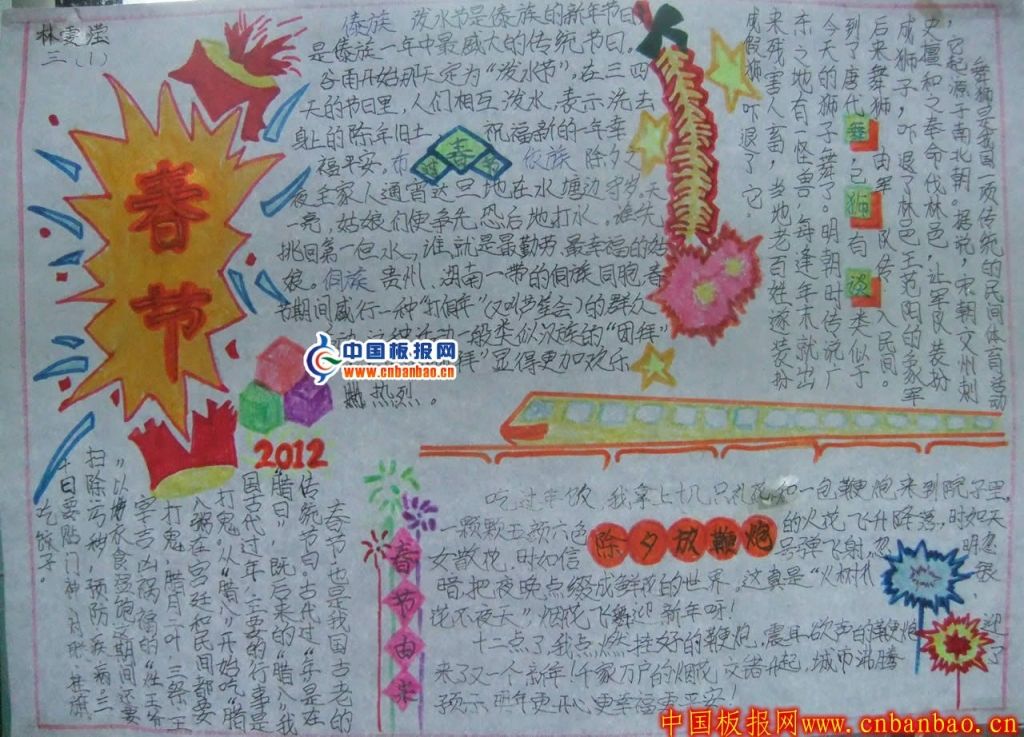 林雯滢
三(1)
春节
傣族 泼水节是傣族的新年节日
是傣族一年中最盛大的传统节日。
谷雨开始那天定为“泼水节”。在三四
天的节日里，人们相互泼水，表示洗去
身上的陈年旧土 祝福新的一年幸
福平安。布
春
依族 除夕之
夜全家人通宵达旦地在水塘边守岁。天
一亮，姑娘们便争先恐后地打水。谁先
挑回第一但水，谁就是最勤劳、最幸福的姑
娘。侗族 贵州、湖南一带的侗族同胞，春
节期间盛行一种“打侗年”(又叫芦笙会)的群众
这种活动一般类似汉族的“团拜”
拜”显得更加欢乐
热烈。
舞狮是我国一项传统的民间体育活动
，它起源于南北朝。据说，宋朝交州刺
史檀和之奉命伐林邑，让军队装扮
成狮子，吓退了林邑王范阳的象军
后来舞狮 由军 队传 入民间。
到了唐代舞，已狮有说类似于
今天的狮子舞了。明朝时传说广
东之地有一怪兽，每逢年末就出
来残害人畜，当地老百姓遂装扮
成假狮 吓退了它。
中国板报网
www.cnbanbao.cn
2012
春节也是我国古老的
传统节日。古代过“年”是在
“腊日”，既后来的“腊八”我
国古代过年，主要的行事是
打鬼。从“腊八”开始吃“腊
八粥在宫廷和民间都要
“打鬼”，腊月二十三祭王
字吉凶祸福的“灶王爷
”以增衣食温饱；这期间还要
扫除污秽，预防疾病；三
十日要贴门神、对联、挂旗
吃饺子。
春节由来
吃过年饭，我拿上十几只礼花和一包鞭炮来到院子里，
一颗颗五颜六色
除夕放鞭炮
的火花，飞升降落，时如天
女散花，时如信
号弹飞射，忽 明忽
暗，把夜晚点缀成鲜花的世界。这真是“火树 银
花不夜天”，烟花飞舞迎新年呀！
十二点了，我点燃挂好的鞭炮，震耳欲声的鞭炮 迎
来了又一个新年！千家万户的烟花交诸升起，城市沸腾 了
预示明年更开心，更幸福更平安！
中国板报网www.cnbanbao.cn